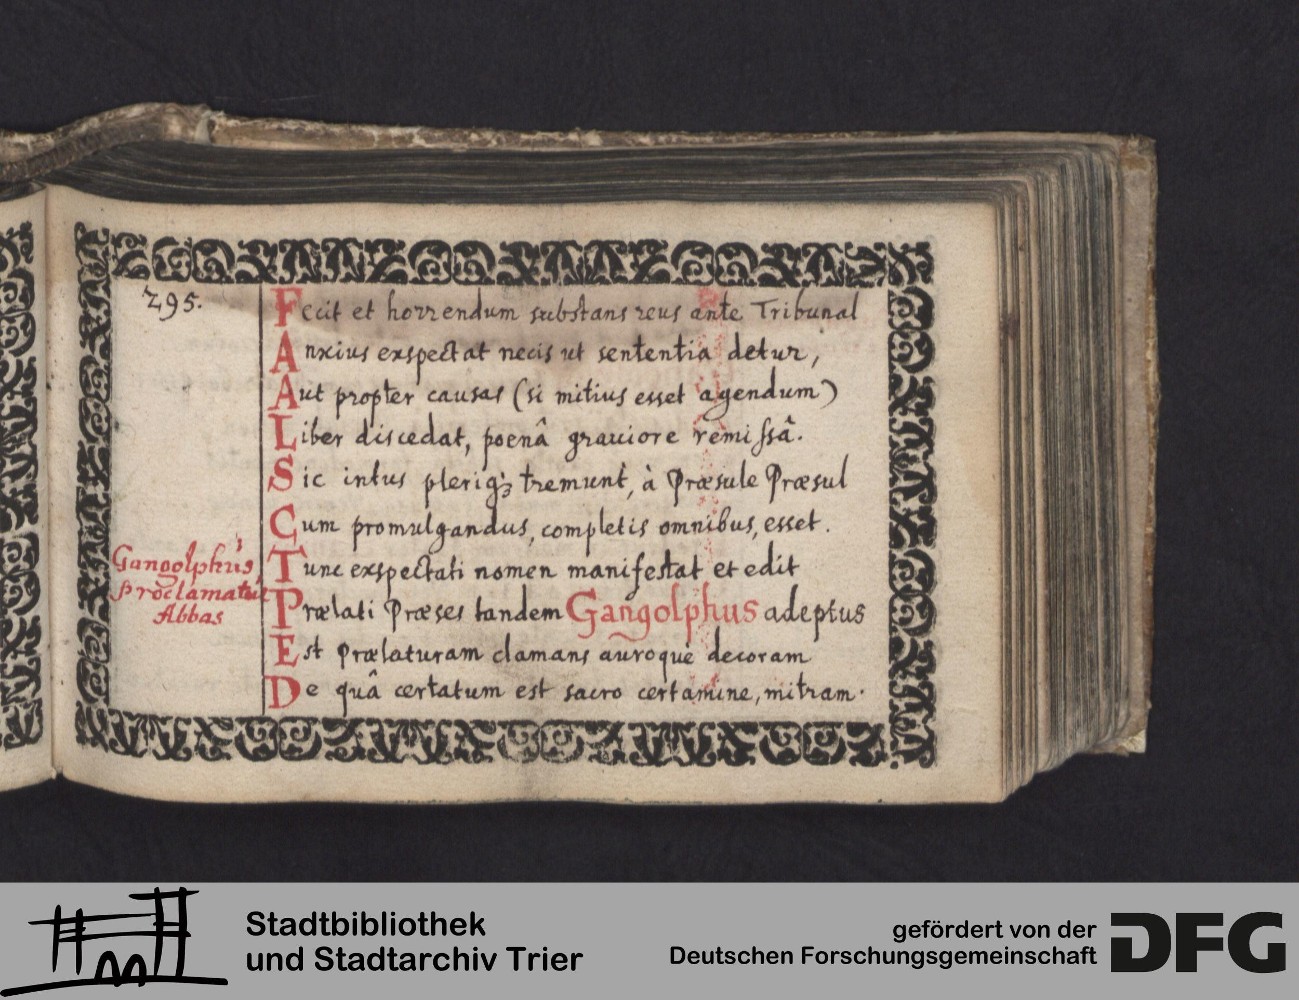 295.
Fecit et horrendum substans reus ante Tribunal
Anxius exspectat necis ut sententia detur,
Aut propter causas (si mitius esset agendum)
Liber discedat, poenâ grauiore remissâ.
Sic intus pleriq₃ tremunt, à Præsule Præsul
Cum promulgandus, completis omnibus, esset.
Tunc exspectati nomen manifestat et edit
Prælati Præses tandem Gangolphus adeptus
Est prælaturam clamans auroque decoram
De quâ certatum est sacro certamine, mitram.
Gangolphus,
proclamatur
Abbas
Stadtbibliothek
und Stadtarchiv Trier
gefördert von der
Deutschen Forschungsgemeinschaft
DFG